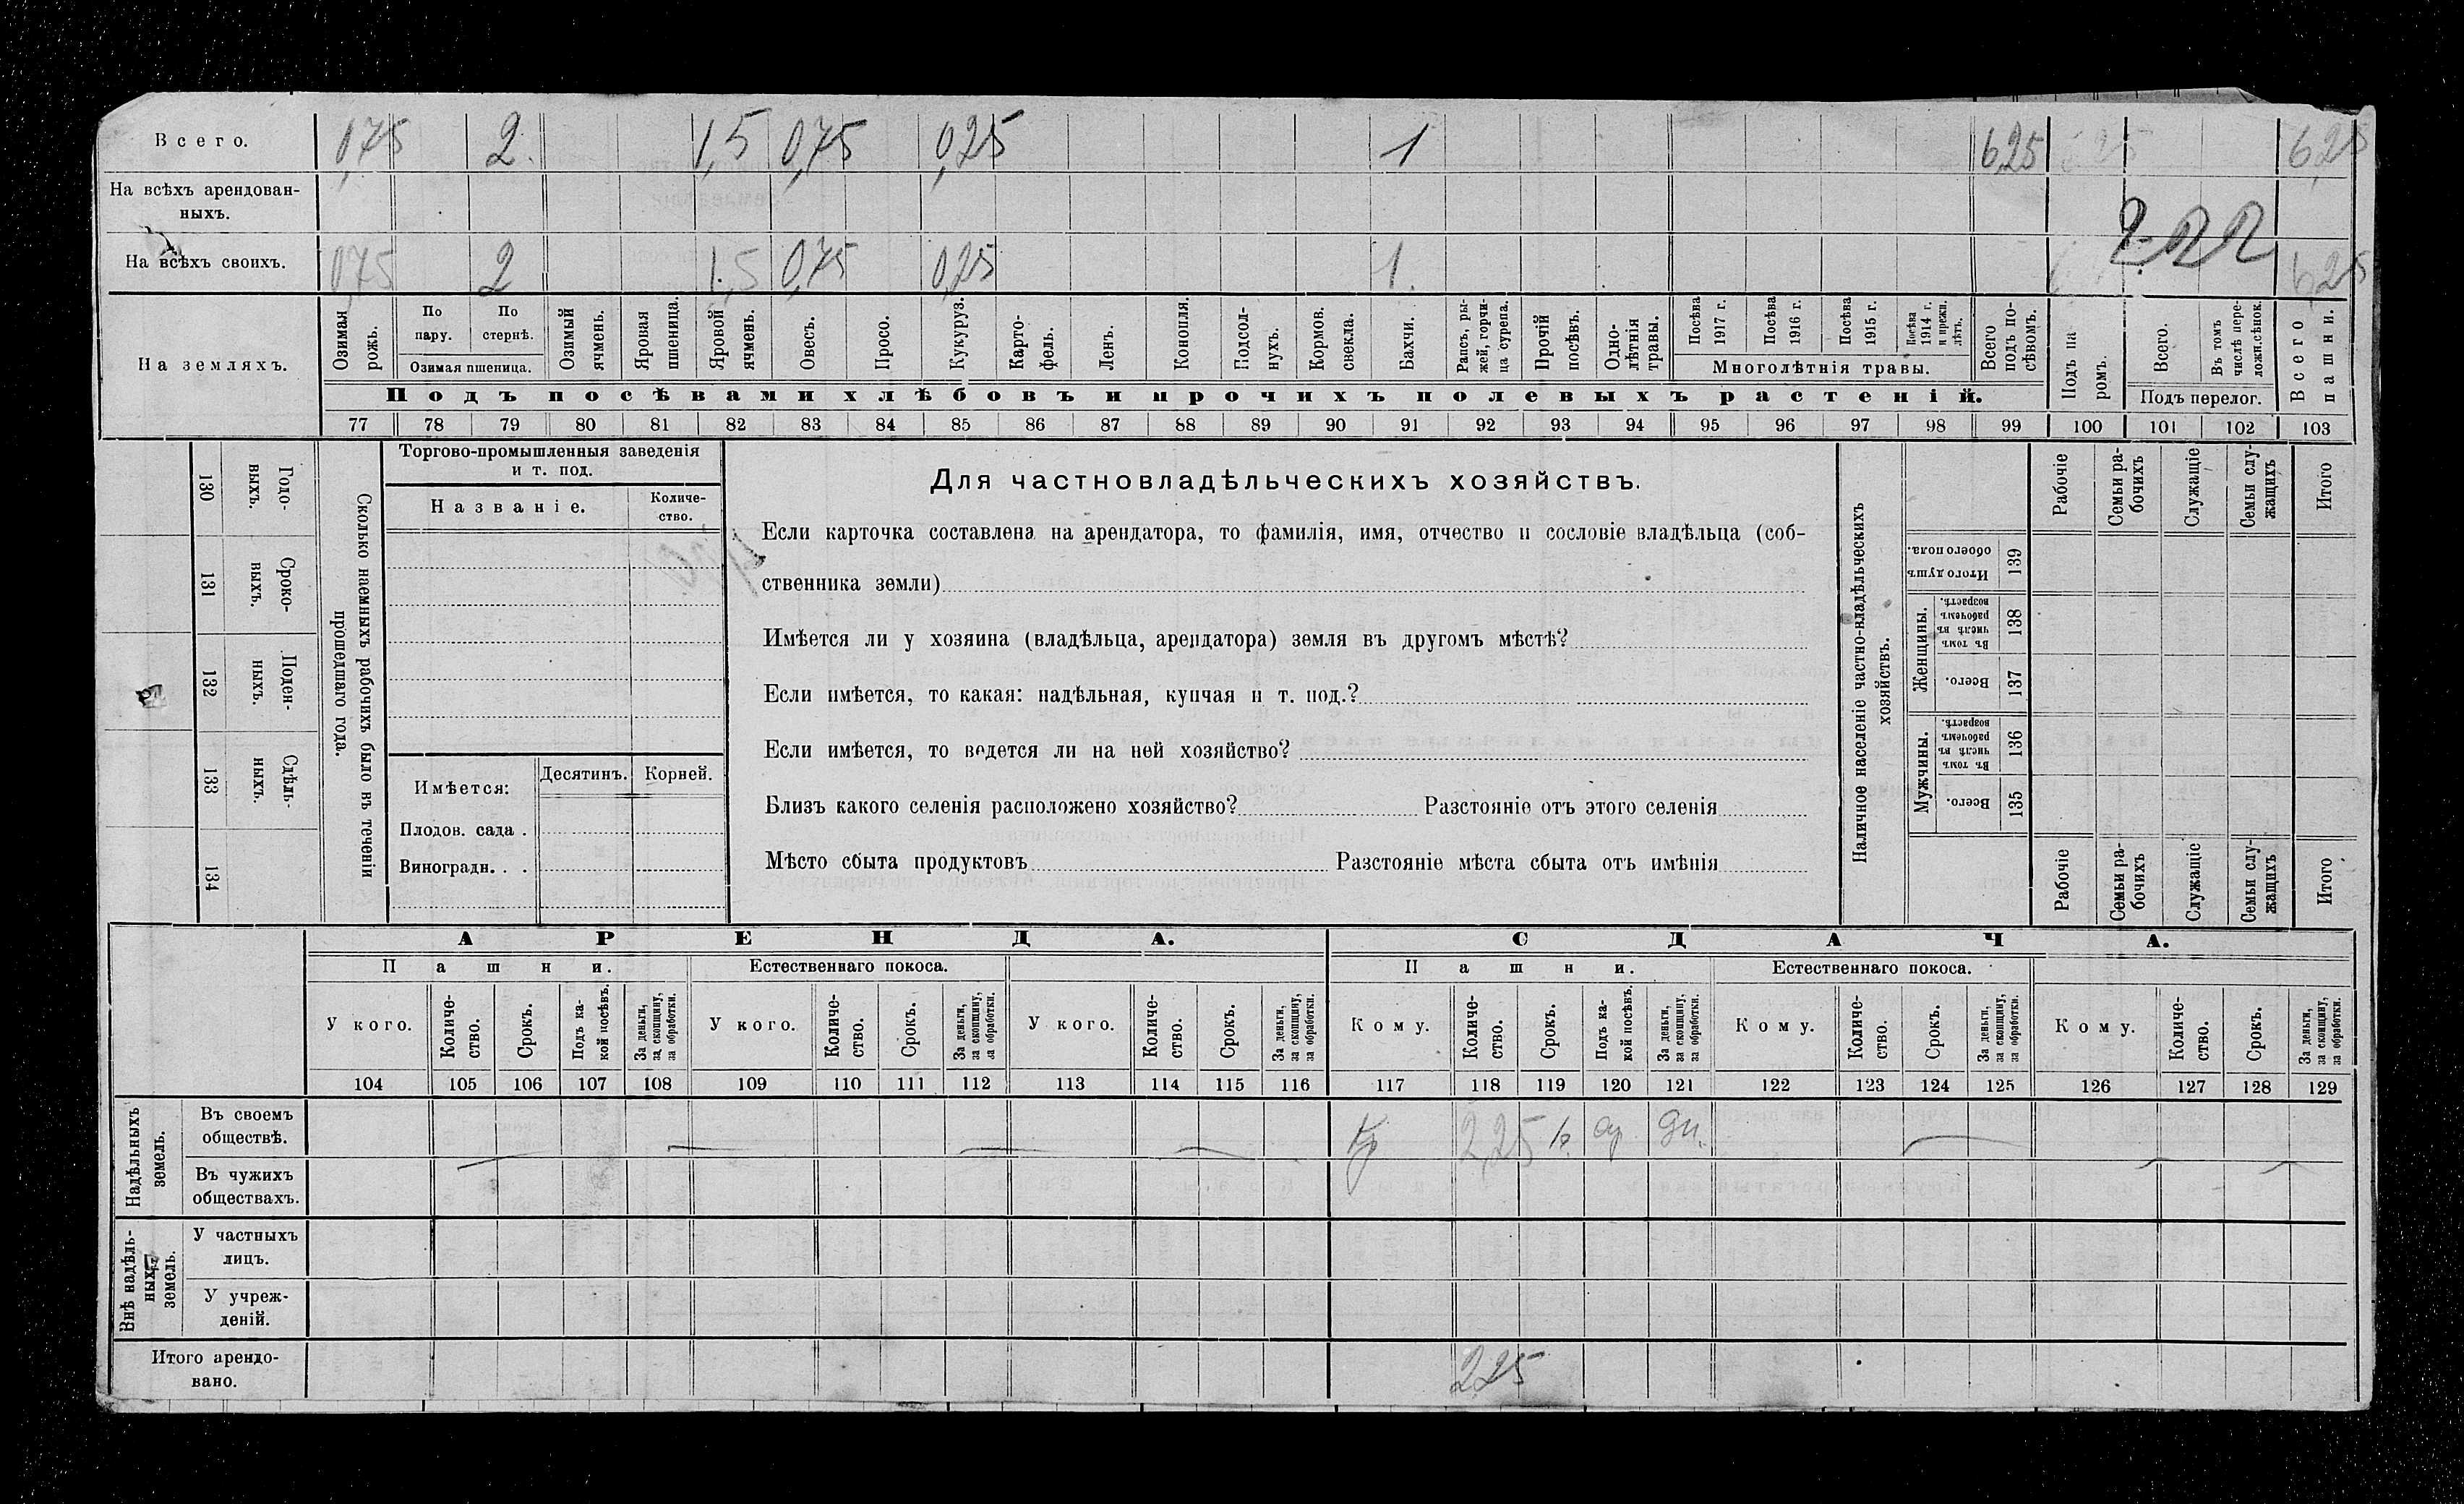 Всего. 0,75 2. 1,5 0,75 0,25 1 6,25 6,25
На всѣхъ арендован-
ныхъ.
На всѣхъ своихъ. 0,75 2 1,5 0,75 0,25 1. 6,25
На земляхъ.
Озимая рожь.
По пару.
По стернѣ.
Озимая пшеница.
Озимый ячмень.
Яровая пшеница.
Яровой ячмень.
Овесъ.
Просо.
Кукуруз.
Карто-
фель.
Ленъ.
Конопля.
Подсол-
нухъ.
Кормов.
свекла.
Бахчи.
Рапсъ, ры-
жей, горчи-
ца сурепа.
Прочій
посѣвъ.
Одно-
лѣтнія
травы.
Посѣва
1917 г.
Посѣва
1916 г.
Посѣва
1915 г.
Посѣва
1914 г.
и прежн.
лѣтъ.
Многолѣтнія травы.
Всего
подъ по-
сѣвомъ.
Подъ па
ромъ.
Всего.
Въ томъ
числѣ пере-
ложн.сѣнок.
Подъ перелог.
Всего
пашни.
Подъ посѣвами хлѣбовъ и прочихъ полевыхъ растеній.
77 78 79 80 81 82 83 84 85 86 87 88 89 90 91 92 93 94 95 96 97 98 99 100 101 102 103
130 Годо-
выхъ.
131 Сроко-
выхъ.
132 Поден-
ныхъ.
133 Сдѣль-
ныхъ.
134
Сколько наемныхъ рабочихъ было въ теченіи
прошедшаго года.
Торгово-промышленныя заведенія
и т. под.
Названіе.
Количе-
ство.
Имѣется: Десятинъ. Корней.
Плодов. сада .
Виноградн. . .
Для частновладѣльческихъ хозяйствъ.
Если карточка составлена на арендатора, то фамилія, имя, отчество и сословіе владѣльца (соб-
ственника земли)
Имѣется ли у хозяина (владѣльца, арендатора) земля въ другомъ мѣстѣ?
Если имѣется, то какая: надѣльная, купчая и т. под.?
Если имѣется, то ведется ли на ней хозяйство?
Близъ какого селенія расположено хозяйство? Разстояніе отъ этого селенія
Мѣсто сбыта продуктовъ Разстояніе мѣста сбыта отъ имѣнія
Наличное населеніе частно-владѣльческихъ
хозяйствъ.
Рабочіе
Семьи ра-
бочихъ
Служащіе
Семьи слу-
жащихъ
Итого
Итого душъ
обоего пола.
139
Женщины.
Въ томъ
числѣ въ
рабочемъ
возрастѣ.
138
Всего.
137
Мужчины.
Въ томъ
числѣ въ
рабочемъ
возрастѣ.
136
Всего.
135
Рабочіе
Семьи ра-
бочихъ
Служащіе
Семьи слу-
жащихъ
Итого
АРЕНДА. СДАЧА.
Пашни. Естественнаго покоса. Пашни. Естественнаго покоса.
У кого.
Количе-
ство.
Срокъ.
Подъ ка-
кой посѣвъ.
За деньги,
за скопщину,
за обработки.
У кого.
Количе-
ство.
Срокъ.
За деньги,
за скопщину,
за обработки.
У кого.
Количе-
ство.
Срокъ.
За деньги,
за скопщину,
за обработки.
Кому.
Количе-
ство.
Срокъ.
Подъ ка-
кой посѣвъ.
За деньги,
за скопщину,
за обработки.
Кому.
Количе-
ство.
Срокъ.
За деньги,
за скопщину,
за обработки.
Кому.
Количе-
ство.
Срокъ.
За деньги,
за скопщину,
за обработки.
104 105 106 107 108 109 110 111 112 113 114 115 116 117 118 119 120 121 122 123 124 125 126 127 128 129
Надѣльныхъ
земель.
Въ своемъ
обществѣ. Кр 2,25
Въ чужихъ
обществахъ.
Внѣ надѣль-
ныхъ
земель.
У частныхъ
лицъ.
У учреж-
деній.
Итого арендо-
вано. 2,25